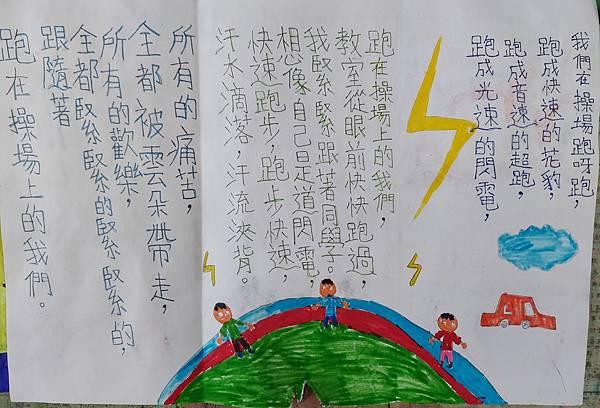 我們在操場跑呀跑，
跑成快速的花豹，
跑成音速的超跑，
跑成光速的閃電，
跑在操場上的我們，
教室從眼前快快跑過，
我緊緊跟著同學。
想像自己是道閃電
快速跑步，跑步快速，
汗水滴落，汗流浹背。
所有的痛苦，
全都被雲朵帶走，
所有的歡樂，
全都緊緊的緊緊的，
跟隨著
跑在操場上的我們。